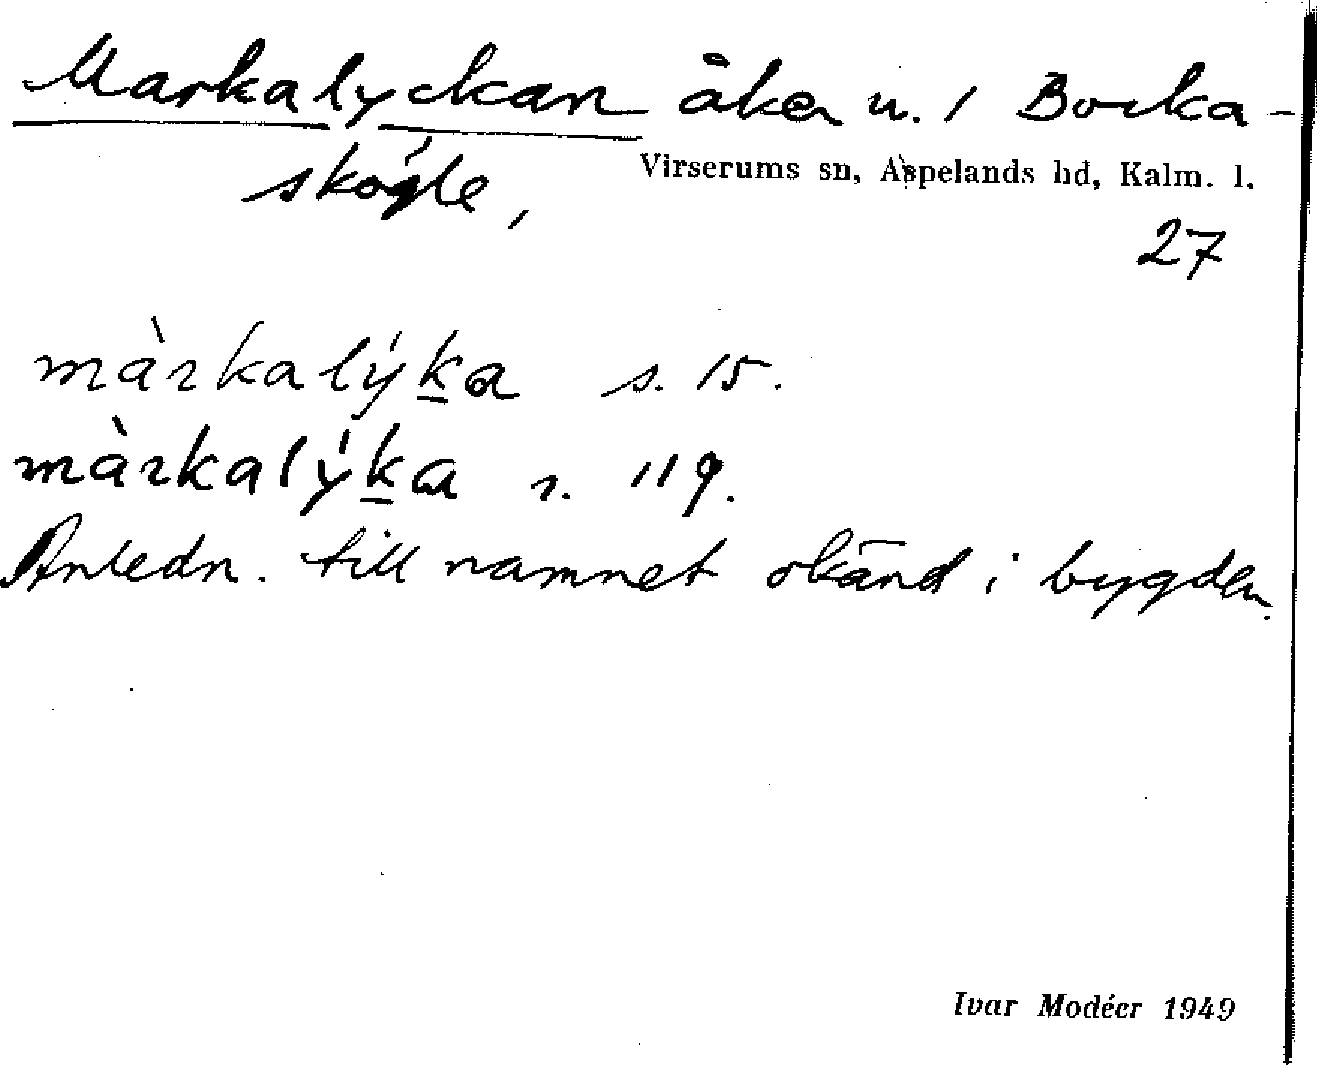 Markalyckan åker u. 1 Borka-
skógle,
Virserums sn, Aspelands hd, Kalm. l.
27
màrkalýka s. 15.
màrkalýka s. 119.
Anledn. till namnet okänd i bygden.
Ivar Modéer 1949